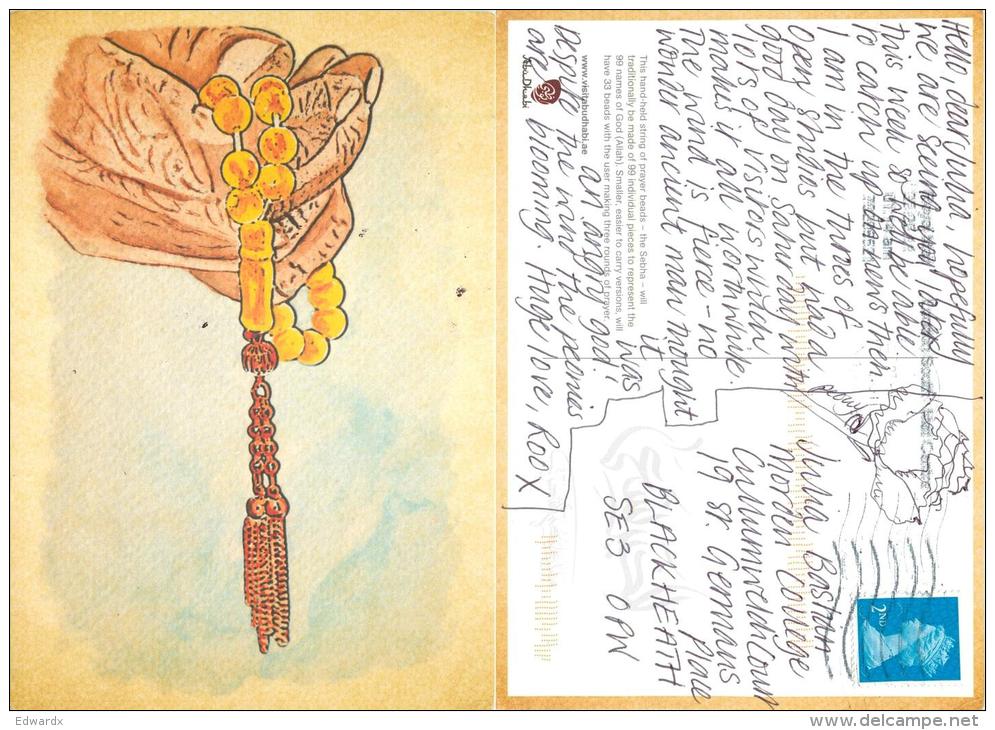 Hello, dear Julia, hopefully
we are seeing you later
this week so I'll be able
to catch up on news then.
I am in the throes of
Open Studios event and a
good day on Saturday with
lots of visitors which
makes it all worthwhile.
The wind is fierce – no
wonder ancient man thought
it was
an angry god!
Despite the wind the peonies
are blooming. Huge love, Roo X
This hand-held string of prayer beads – the Sebha – will
traditionally be made of 99 individual pieces to represent the
99 names of God (Allah). Smaller, easier to carry versions, will
have 33 beads with the user making three rounds of prayer.
www.visitabudhabi.ae
Abu Dhabi
Julia Bastian
Morden College
19 St. Germans Place
BLACKHEATH
SE3 0PN
2ND
Edwardx
www.delcampe.net